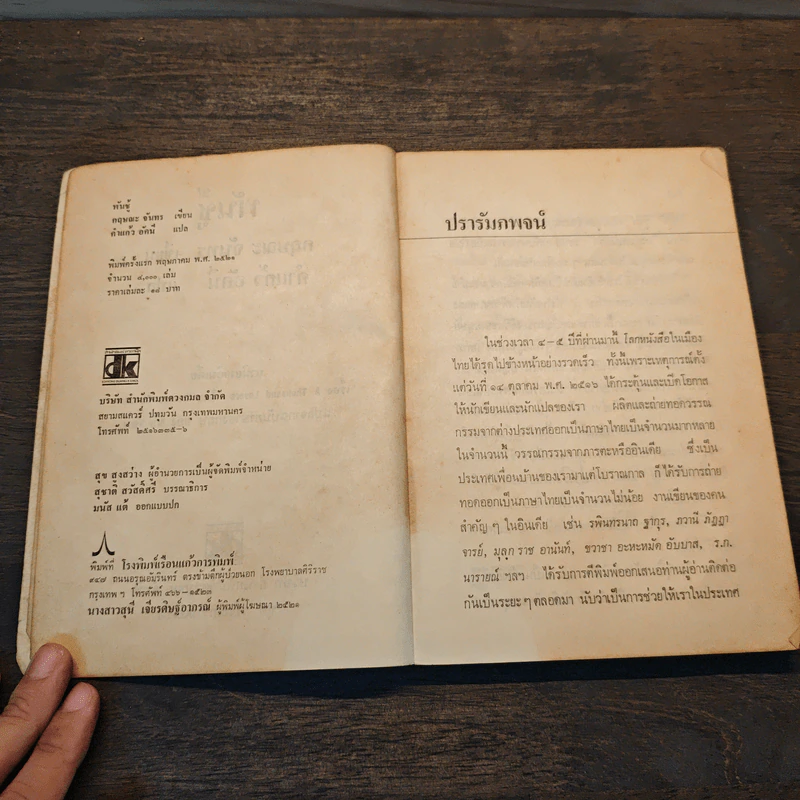 พันชู้
กฤษณะ จันทร เขียน
คำแก้ว อัคนี แปล
พิมพ์ครั้งแรก พฤษภาคม พ.ศ. ๒๕๒๑
จำนวน ๔,๐๐๐ เล่ม
ราคาเล่มละ ๑๘ บาท
dk
บริษัท สำนักพิมพ์ดวงกมล จำกัด
สยามสแควร์ ปทุมวัน กรุงเทพมหานคร
โทรศัพท์ ๒๕๑๖๓๓๕-๖
สุข สูงสว่าง ผู้อำนวยการเป็นผู้จัดพิมพ์จำหน่าย
สุชาติ สวัสดิ์ศรี บรรณาธิการ
มนัส แต้ ออกแบบปก
พิมพ์ที่ โรงพิมพ์เรือนแก้วการพิมพ์
๙๔๗ ถนนอรุณอัมรินทร์ ตรงข้ามตึกผู้ป่วยนอก โรงพยาบาลศิริราช
กรุงเทพ ฯ โทรศัพท์ ๔๖๖-๑๕๒๓
นางสาวสุนีย์ เจียรดิษฐ์อาภรณ์ ผู้พิมพ์ผู้โฆษณา ๒๕๒๑
ปรารัมภพจน์
ในช่วงเวลา ๔-๕ ปีที่ผ่านมานี้ โลกหนังสือในเมือง
ไทยได้รุดไปข้างหน้าอย่างรวดเร็ว ทั้งนี้เพราะเหตุการณ์ตั้ง
แต่วันที่ ๑๔ ตุลาคม พ.ศ. ๒๕๑๖ ได้กระตุ้นและเบิดโอกาส
ให้นักเขียนและนักแปลของเรา ผลิตและถ่ายทอดวรรณ
กรรมจากต่างประเทศออกเป็นภาษาไทยเป็นจำนวนมากหลาย
ในจำนวนนี้ วรรณกรรมจากภารตะหรืออินเดีย ซึ่งเป็น
ประเทศเพื่อนบ้านของเรามาแต่โบราณกาล ก็ได้รับการถ่าย
ทอดออกเป็นภาษาไทยเป็นจำนวนไม่น้อย งานเขียนของคน
สำคัญ ๆ ในอินเดีย เช่น รพินทรนาถ ฐากูร, ภวานี ภัฏฏา
จารย์, มุลุก ราช อานันท์, ขวาชา อะหะหมัด อับบาส, ร.ก.
นารายณ์ ฯลฯ ได้รับการตีพิมพ์ออกเสนอท่านผู้อ่านติดต่อ
กันเป็นระยะ ๆ ตลอดมา นับว่าเป็นการช่วยให้เราในประเทศ